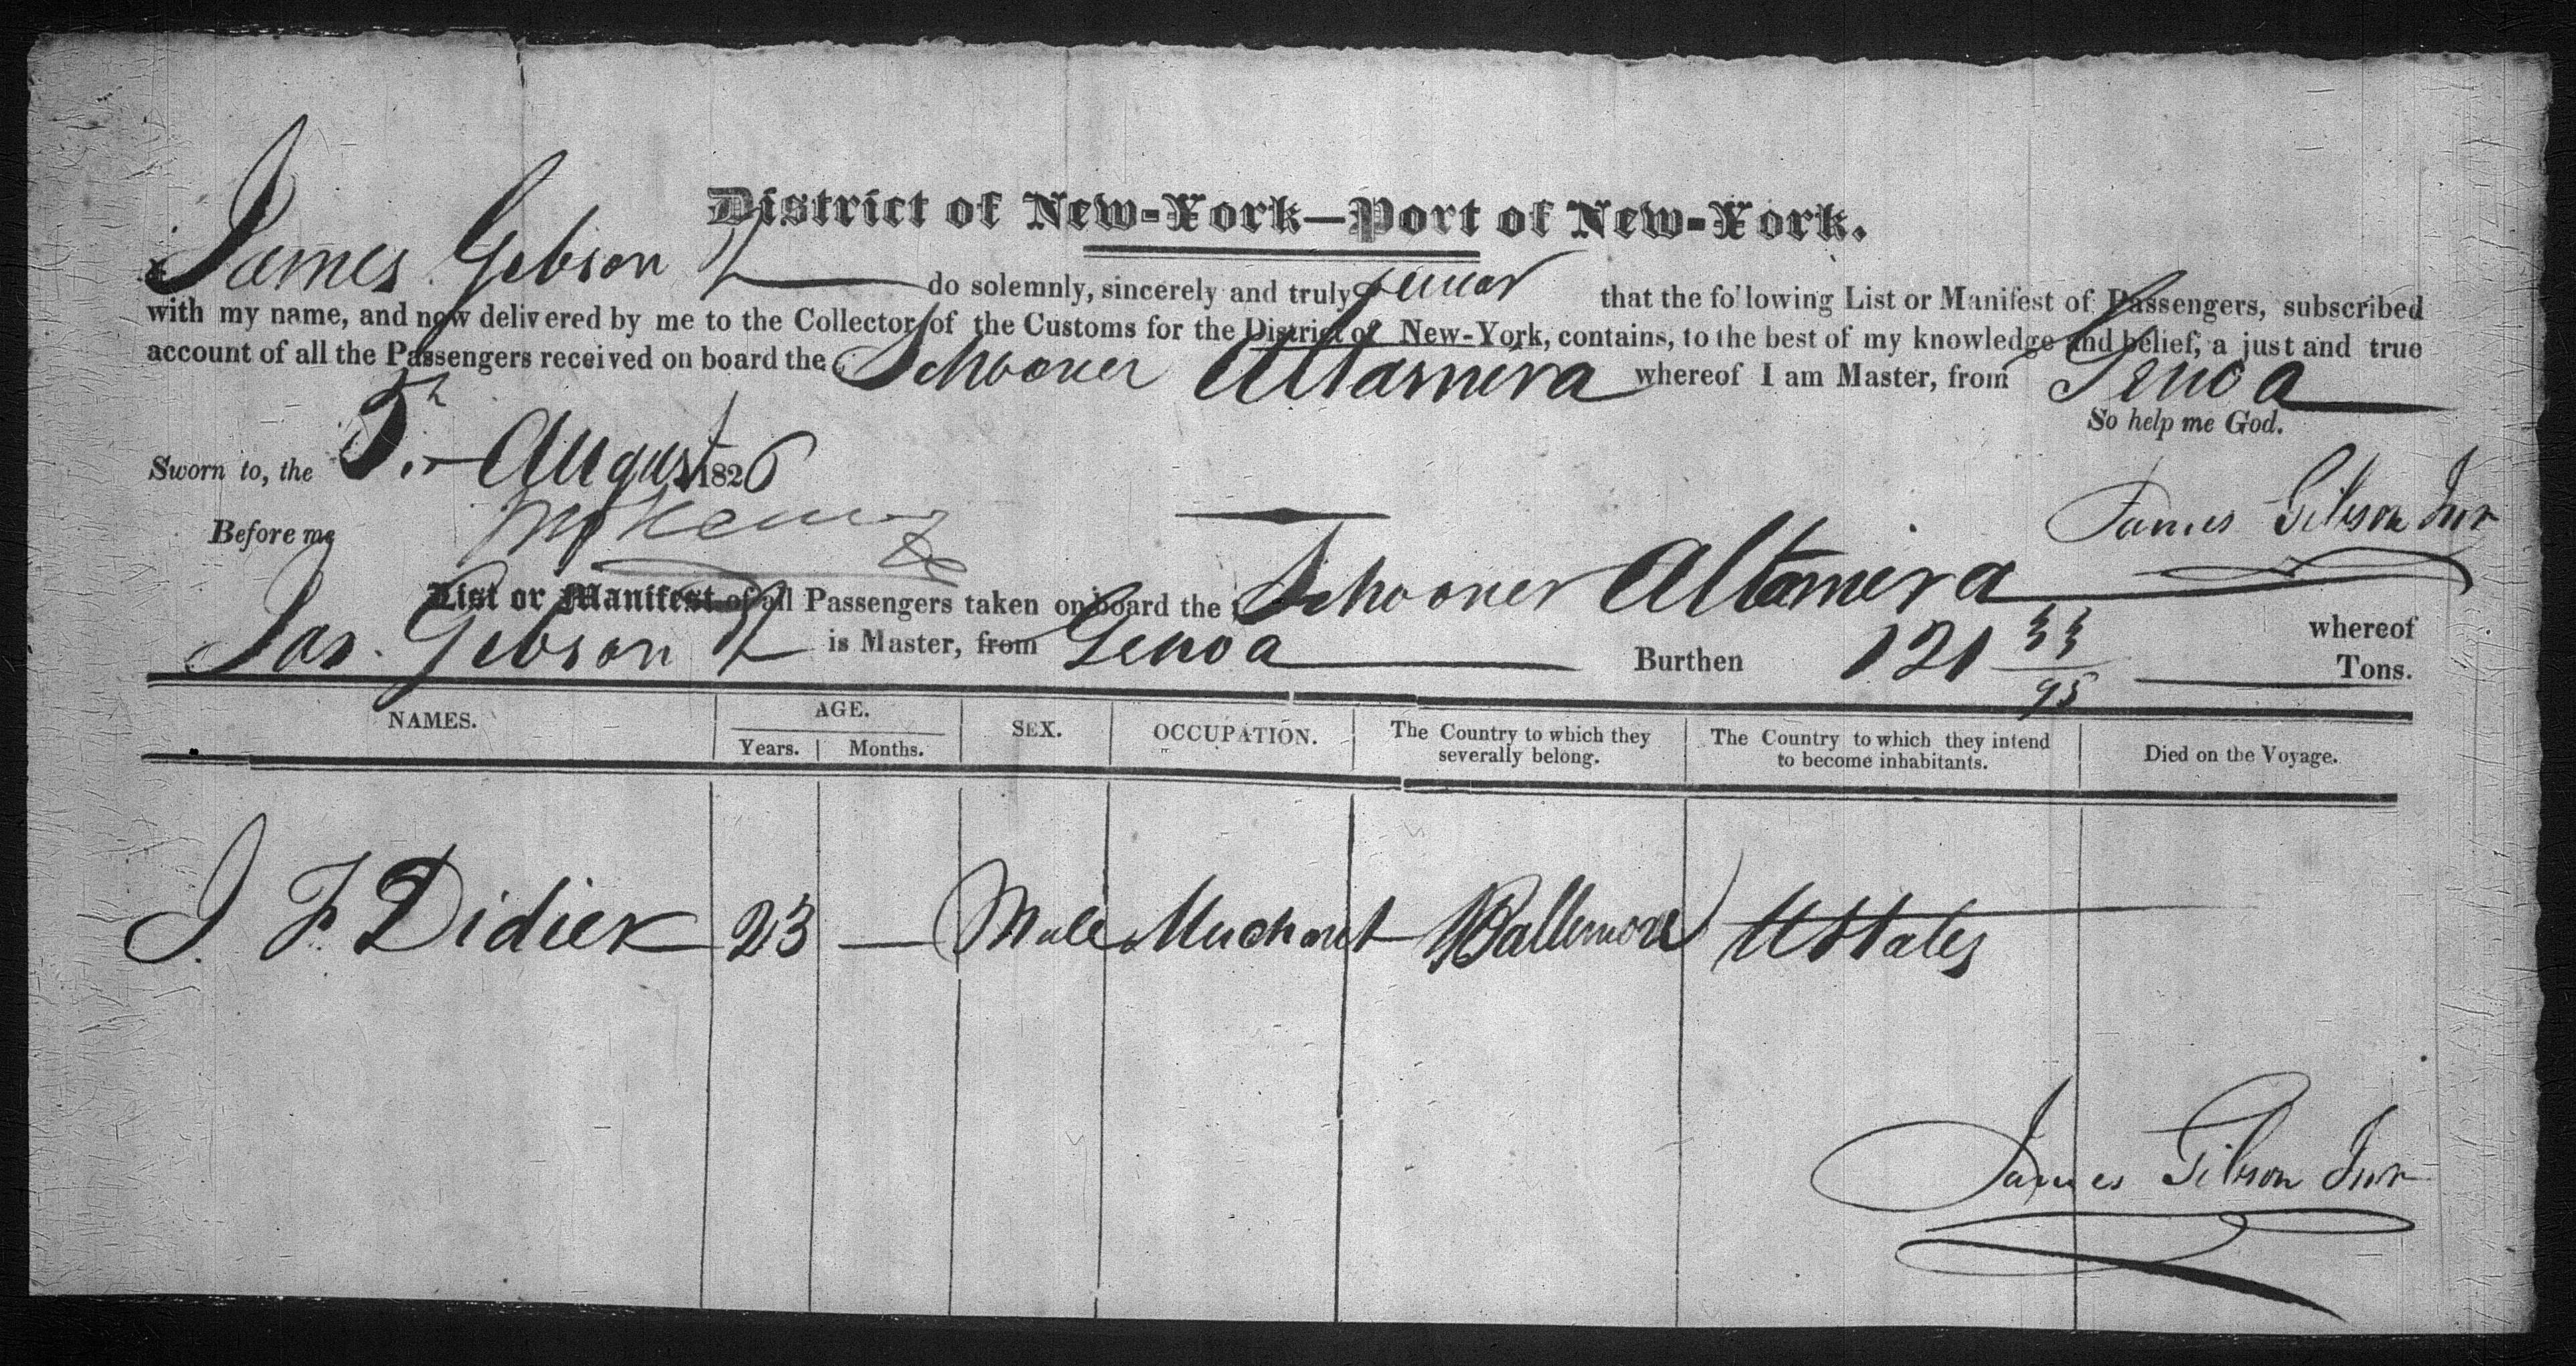 District of New-York—Port of New-York.
James Gebson Jr do solemnly, sincerely and truly swear that the following List or Manifest of Passengers, subscribed
with my name, and now delivered by me to the Collector of the Customs for the District of New-York, contains, to the best of my knowledge and belief, a just and true
account of all the Passengers received on board the Schooner Altamira whereof I am Master, from Genoa
So help me God.
Sworn to, the 5th August 1826
James Gibson Junr
Before me
List or Manifest of all Passengers taken on board the Schooner Altamira whereof
Jas. Gebson Jr is Master, from Genoa Burthen 121 33/95 Tons.
NAMES. AGE. SEX. OCCUPATION. The Country to which they severally belong. The Country to which they intend to become inhabitants. Died on the Voyage.
Years. Months.
J. F. Didier 23 — Male Merchant Baltimore UStates
James Gibson Junr